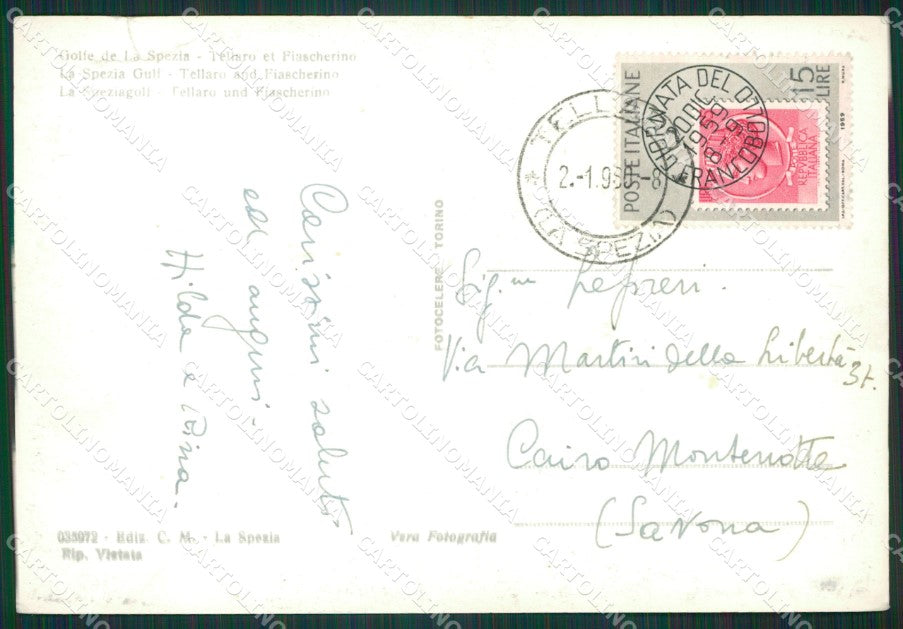 Golfe de La Spezia - Tellaro et Fiascherino
La Spezia Gulf - Tellaro and Fiascherino
La Speziagolf - Tellaro und Fiascherino
Carissimi saluti
ed auguri
Hilda e
FOTOCELERE TORINO
033972 - Ediz. C. M. - La Spezia
Rip. Vietata
Vera Fotografia
POSTE ITALIANE
15 LIRE
1959
POSTE
REPUBBLICA
ITALIANA
GIORNATA DEL
FRANCOBOLLO
20 DIC.
1959
(LA SPEZIA)
Via Martiri della Libertà
31.
Cairo Montenotte
(Savona)
CARTOLINOMANIA